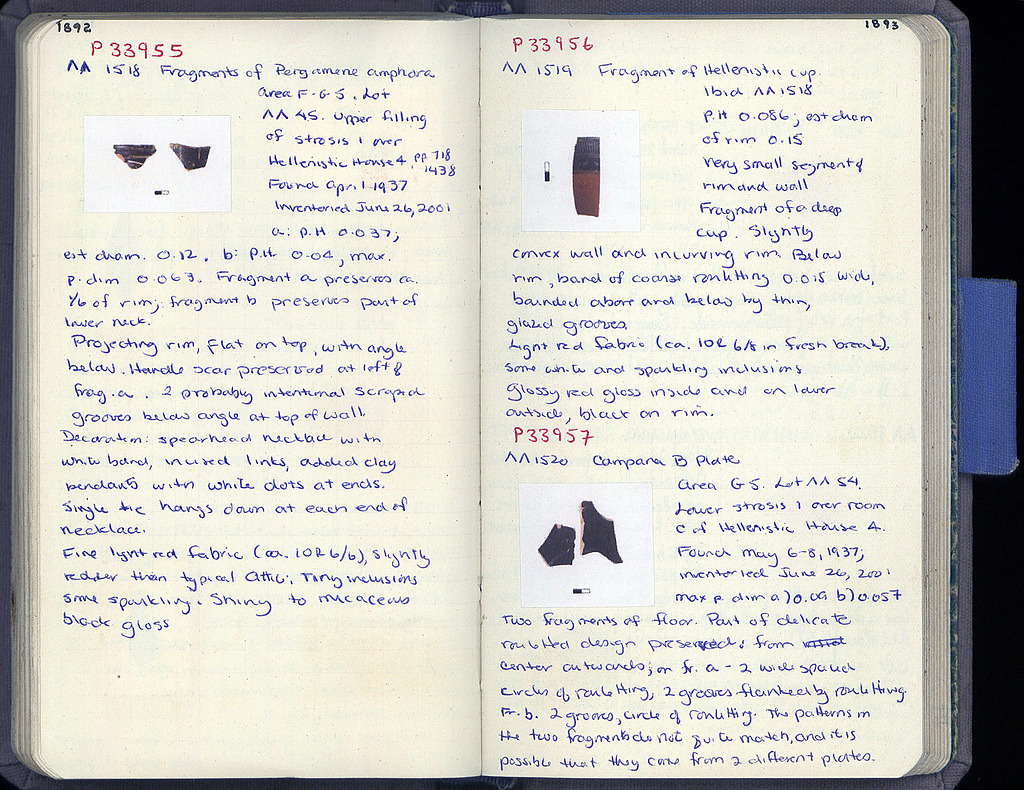 1892
P 33955
ΛΛ 1518 Fragments of Pergamene amphora
Area F-G-5. Lot
ΛΛ 45. Upper filling
of strosis 1 over
Hellenistic House 4 pp 718
1438
Found April 1937
Inventoried June 26, 2001
a: P.H 0.037;
est diam. 0.12. b: P.H. 0.04, max.
p. dim 0.063. Fragment a preserves ca.
1/6 of rim; fragment b preserves part of
lower neck.
Projecting rim, flat on top, with angle
below. Handle scar preserved at left of
frag. a. 2 probably intentional scraped
grooves below angle at top of wall.
Decoration: spearhead necklace with
white band, incised links, added clay
pendants with white dots at ends.
Single tie hangs down at each end of
necklace.
Fine light red fabric (ca. 10R 6/6), slightly
redder than typical Attic; Tiny inclusions
some sparkling. Shiny to micaceous
black gloss
1893
P 33956
ΛΛ 1519 Fragment of Hellenistic cup.
Ibid ΛΛ 1518
P.H 0.086; est diam
of rim 0.15
Very small segment of
rim and wall
Fragment of a deep
cup. Slightly
convex wall and incurving rim. Below
rim, band of coarse rouletting 0.015 wide,
bounded above and below by thin,
glazed grooves.
Light red fabric (ca. 10R 6/8 in fresh break),
some white and sparkling inclusions
Glossy red gloss inside and on lower
outside, black on rim.
P33957
ΛΛ 1520 Campana B Plate
Area G5. Lot ΛΛ 54.
Lower strosis 1 over room
C of Hellenistic House 4.
Found May 6-8, 1937;
inventoried June 26, 2001
max p. dim a) 0.09 b) 0.057
Two fragments of floor. Part of delicate
rouletted design preserved: from
center outwards; on fr. a - 2 wide spaced
circles of rouletting, 2 grooves flanked by rouletting.
Fr. b. 2 grooves, circle of rouletting. The patterns in
the two fragments do not quite match, and it is
possible that they come from 2 different plates.